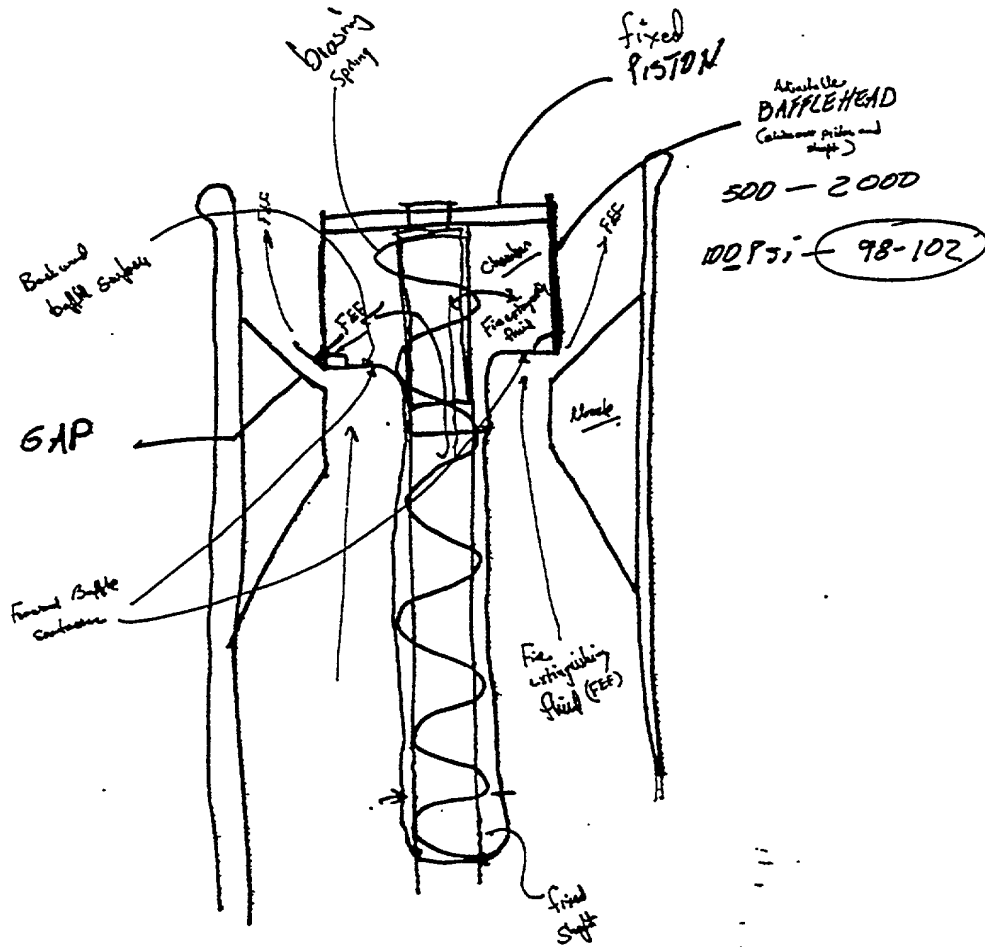 biasing
spring
fixed
PISTON
Adjustable
BAFFLEHEAD
piston and
shaft)
500 — 2000
100 Psi — 98-102
FEF
FEF
Backward
baffle surface
Chamber
Fire extinguishing
fluid
FEF
GAP
Nozzle
Forward Baffle
surface
Fire
extinguishing
fluid (FEF)
fixed
shaft